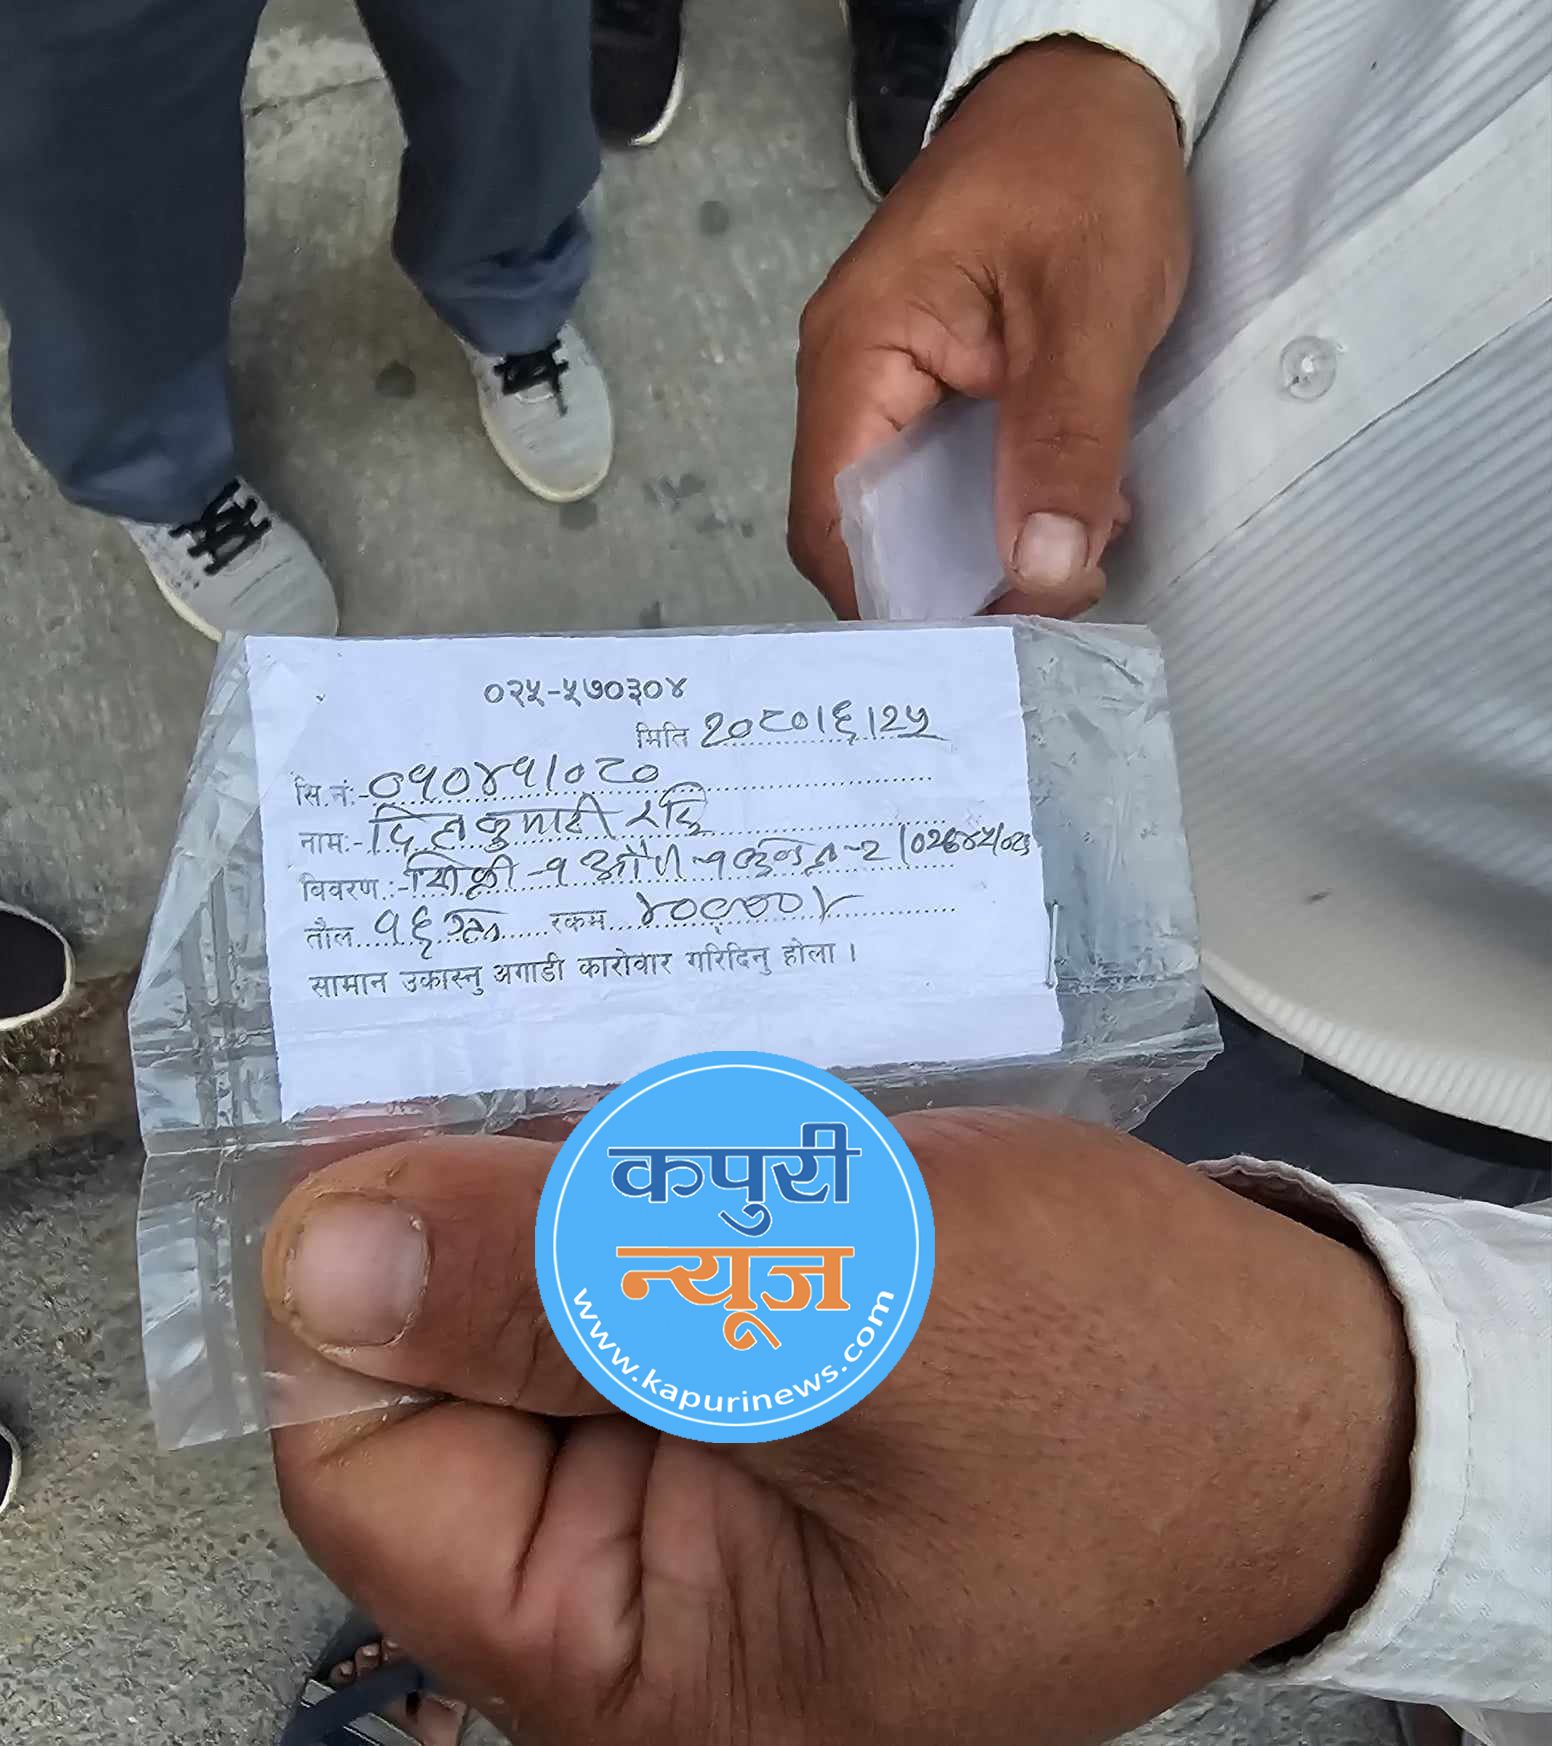 ०२५-५७०३०४
मिति २०८०।६।२५
सि.नं:- ०१०४१/०८०
नाम:- दिल कुमारी
विवरण:- सिक्री -१ औंठी -१ -२
तौल १६ रकम ४००००।-
सामान उकास्नु अगाडी कारोवार गरिदिनु होला ।
कपुरी
न्यूज
www.kapurinews.com